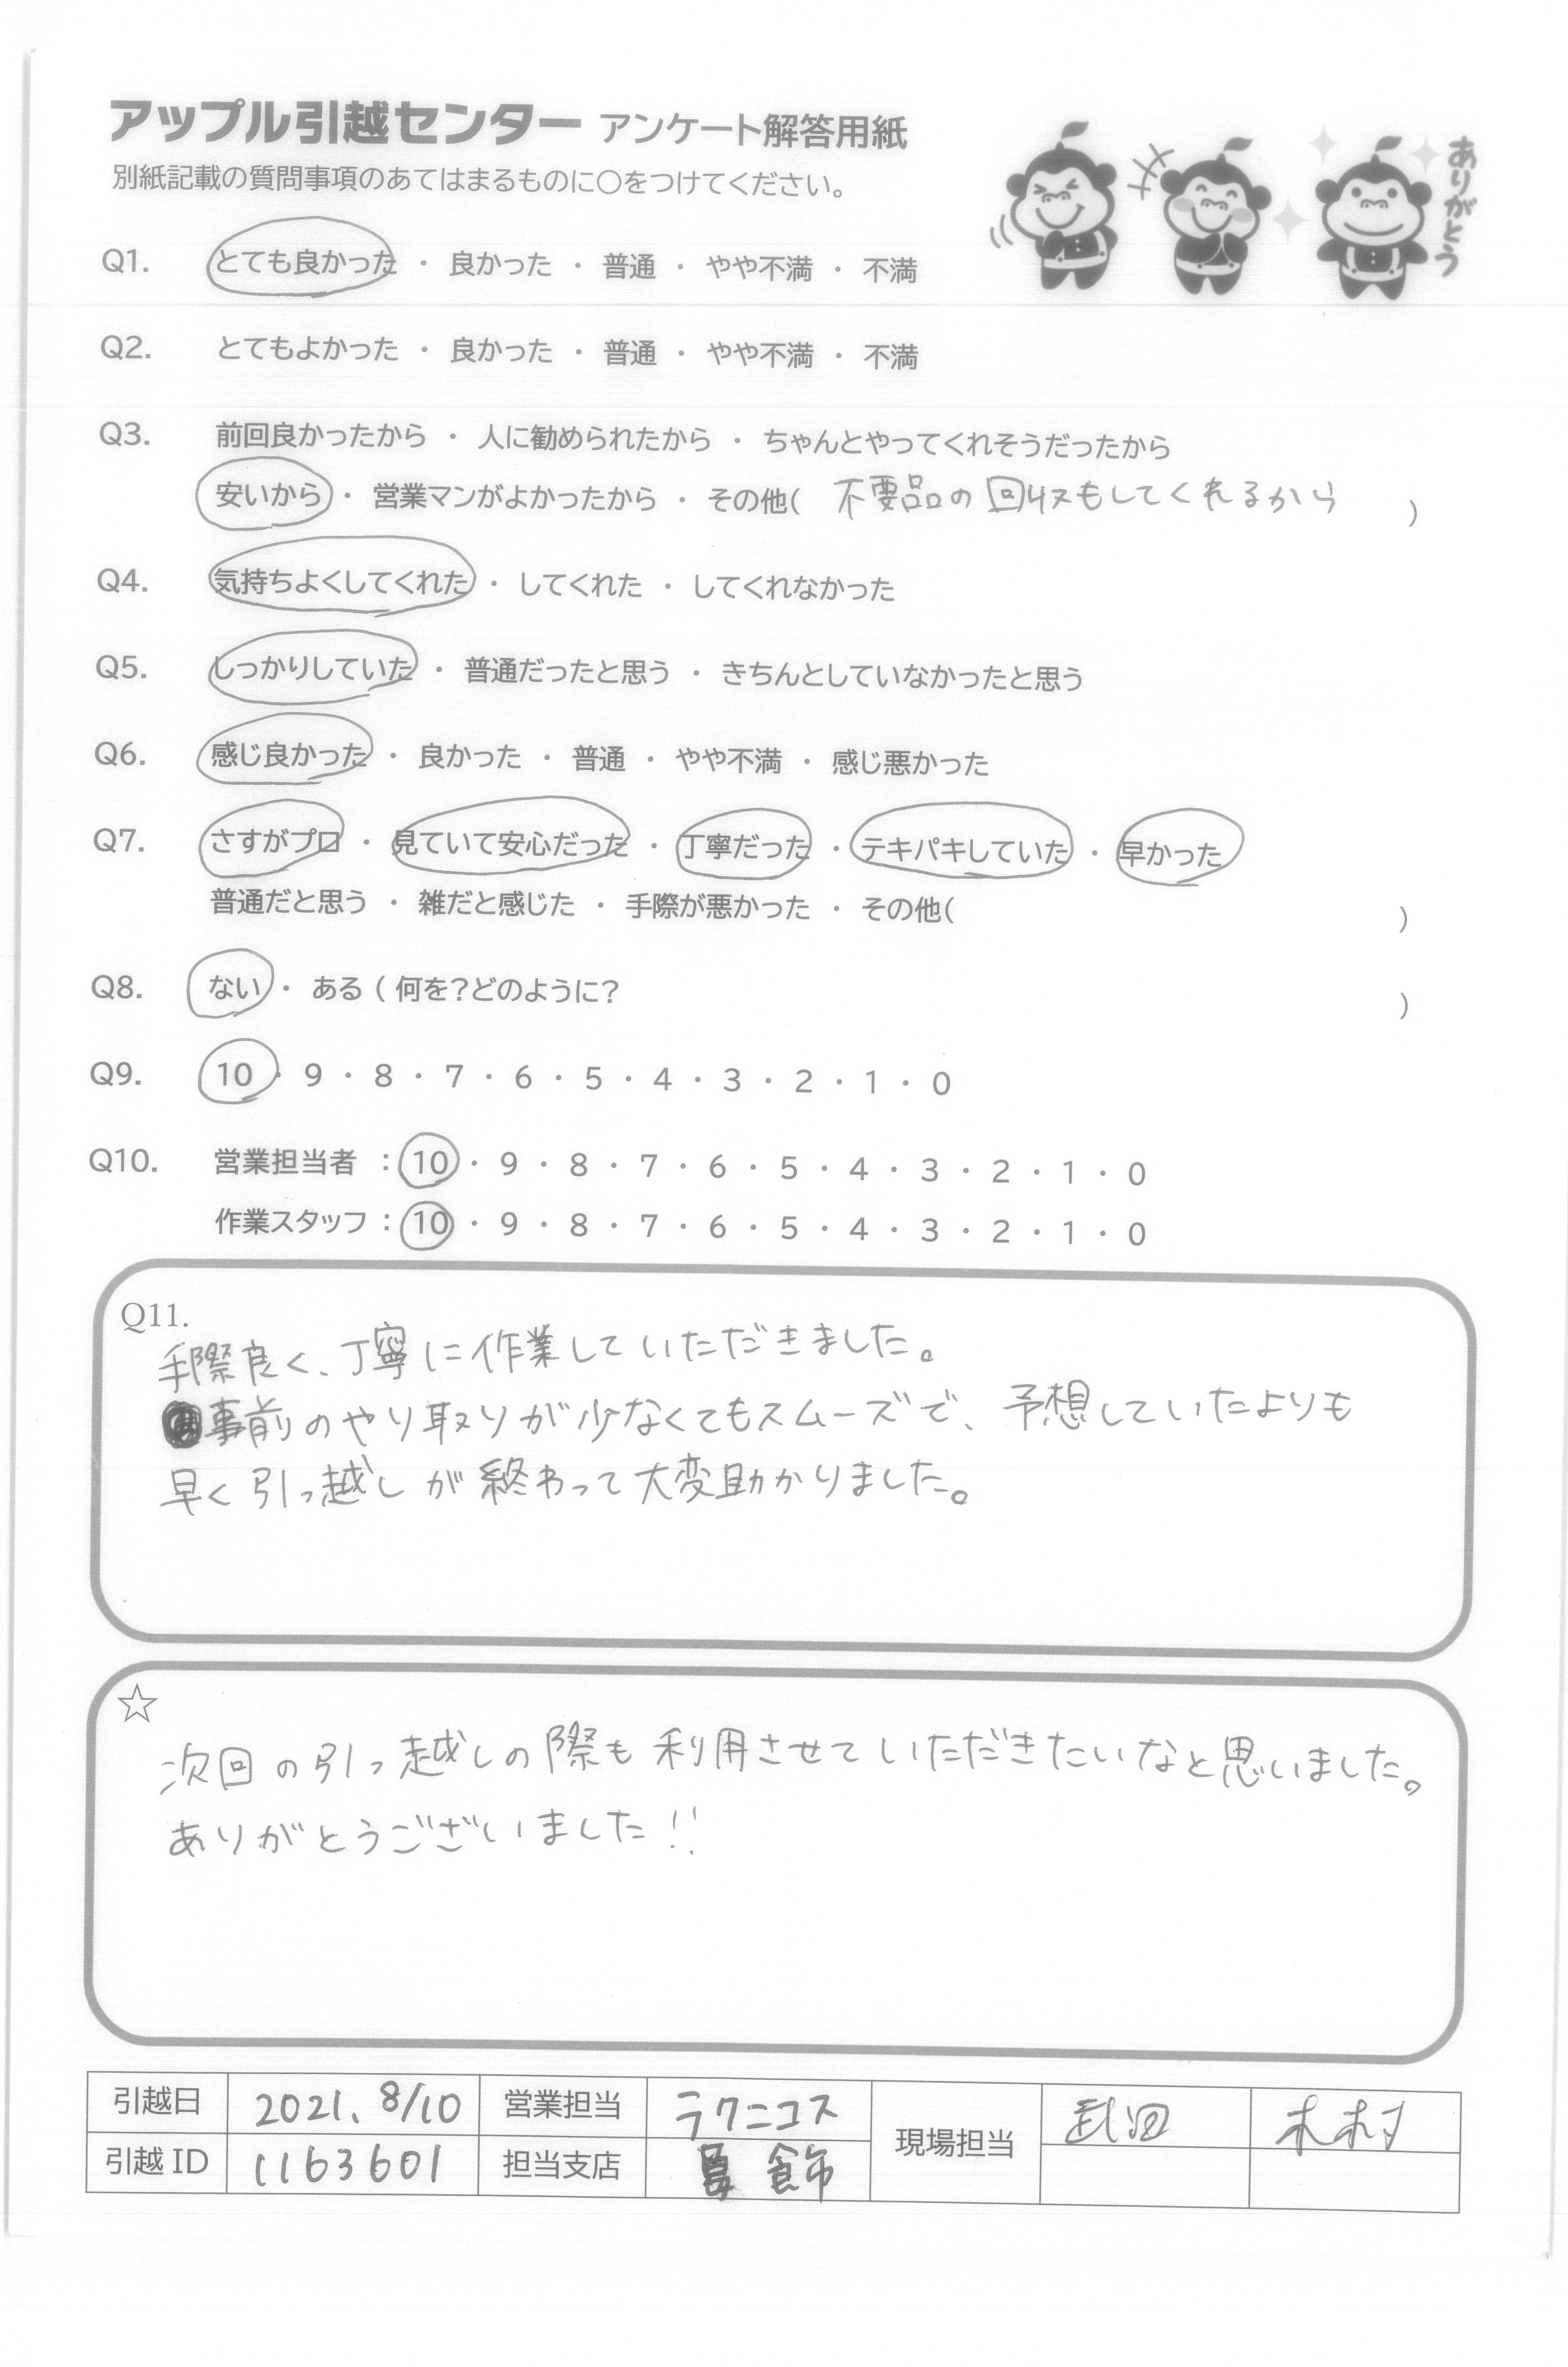 アップル引越センター アンケート解答用紙
別紙記載の質問事項のあてはまるものに○をつけてください。
ありがとう
Q1. とても良かった ・ 良かった ・ 普通 ・ やや不満 ・ 不満
Q2. とてもよかった ・ 良かった ・ 普通 ・ やや不満 ・ 不満
Q3. 前回良かったから ・ 人に勧められたから ・ ちゃんとやってくれそうだったから
安いから ・ 営業マンがよかったから ・ その他( 不要品の回収もしてくれるから )
Q4. 気持ちよくしてくれた ・ してくれた ・ してくれなかった
Q5. しっかりしていた ・ 普通だったと思う ・ きちんとしていなかったと思う
Q6. 感じ良かった ・ 良かった ・ 普通 ・ やや不満 ・ 感じ悪かった
Q7. さすがプロ ・ 見ていて安心だった ・ 丁寧だった ・ テキパキしていた ・ 早かった
普通だと思う ・ 雑だと感じた ・ 手際が悪かった ・ その他( )
Q8. ない ・ ある ( 何を?どのように? )
Q9. 10 ・ 9 ・ 8 ・ 7 ・ 6 ・ 5 ・ 4 ・ 3 ・ 2 ・ 1 ・ 0
Q10. 営業担当者 : 10 ・ 9 ・ 8 ・ 7 ・ 6 ・ 5 ・ 4 ・ 3 ・ 2 ・ 1 ・ 0
作業スタッフ : 10 ・ 9 ・ 8 ・ 7 ・ 6 ・ 5 ・ 4 ・ 3 ・ 2 ・ 1 ・ 0
Q11.
手際良く、丁寧に作業していただきました。
事前のやり取りが少なくてもスムーズで、予想していたよりも
早く引っ越しが終わって大変助かりました。
☆
次回の引っ越しの際も利用させていただきたいなと思いました。
ありがとうございました!!
引越日 2021. 8/10 営業担当 ラクニコス 現場担当 武田 木村
引越ID 1163601 担当支店